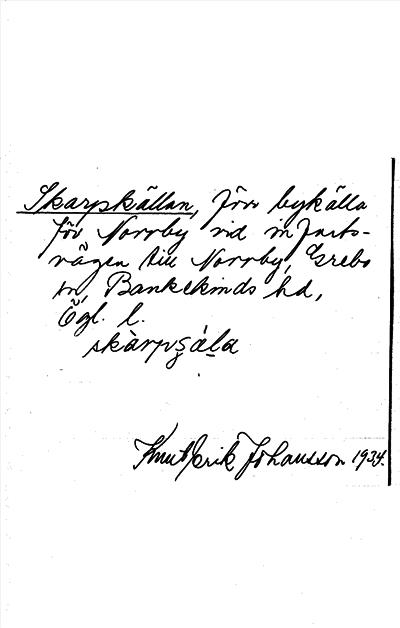 Skarpkällan, förr bykälla
för Norrby vid infarts-
vägen till Norrby, Grebo
sn, Bankekinds hd,
Ögl. l.
Knut Erik Johansson 1934.